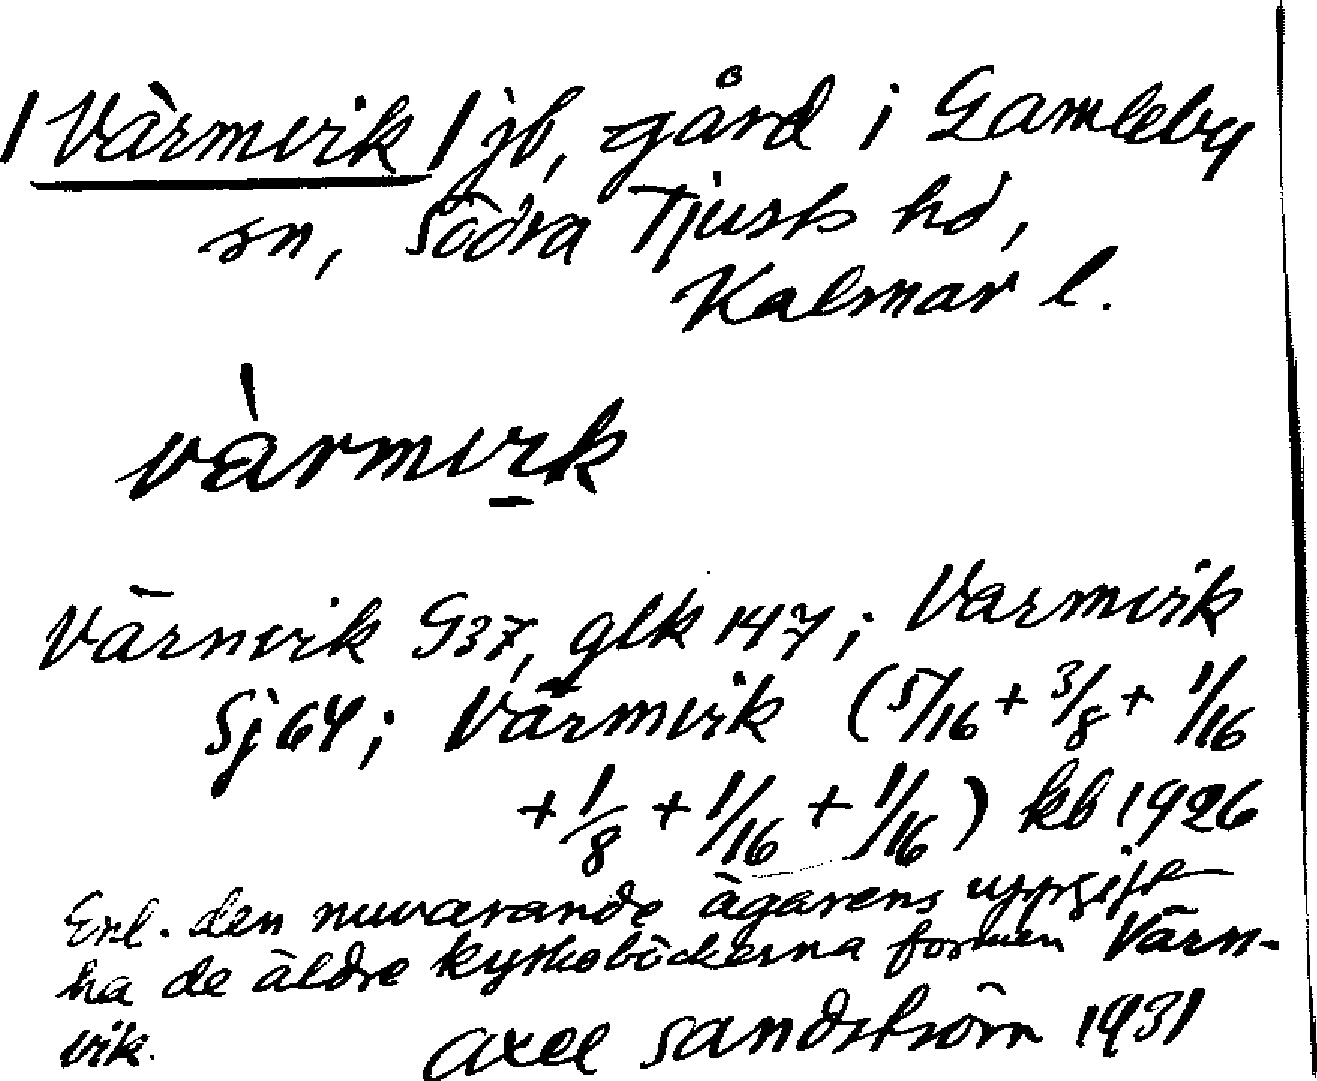 / Värmvik / jb, gård i Gamleby
sn, Södra Tjusts hd,
Kalmar l.
vàrmvik
Värnvik G37, glk 147; Varmvik
Sj 64; Värmvik (5/16 + 3/8 + 1/16
+ 1/8 + 1/16 + 1/16) kb 1926
Enl. den nuvarande ägarens uppgift
ha de äldre kyrkoböckerna formen Värn-
vik. Axel Sandström 1931